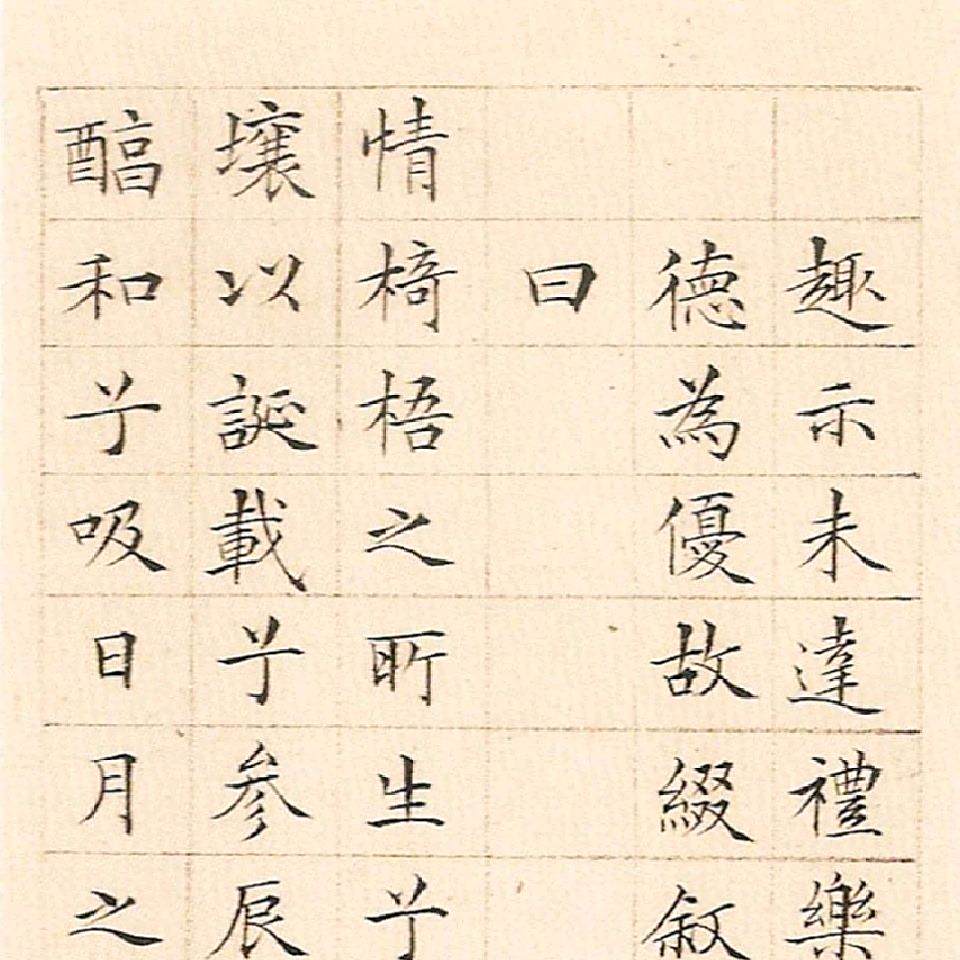 趣示未達禮樂
德為優故綴叙
曰
情椅梧之所生兮
壤以誕載兮参辰
醕和兮吸日月之